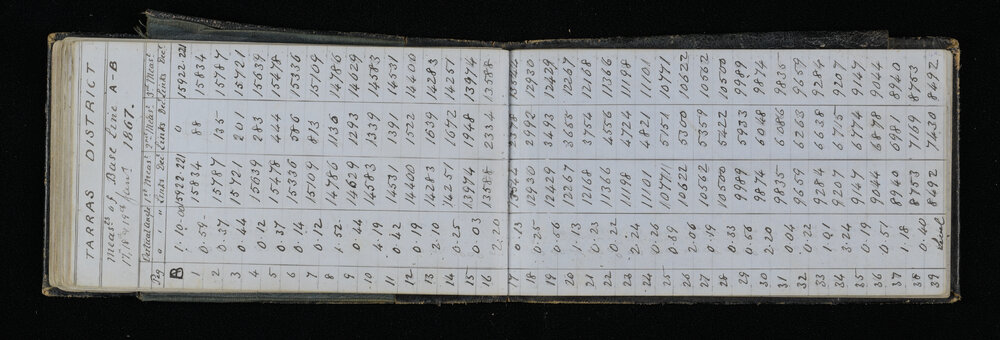 TARRAS DISTRICT
Meas.ts of Base Line A-B
17, 18 & 19th June 1867.
Peg Vertical Angle 1st Meas.t 2nd Meas.t 3rd Meas.t
° ' " Links Decl Links Decl Links Decl
B 1.10.00 15922.221 0 15922.221
1 0.59 15834 88 15834
2 0.37 15787 135 15787
3 0.44 15721 201 15721
4 0.12 15639 283 15639
5 0.37 15478 444 15478
6 0.14 15336 586 15336
7 0.12 15109 813 15109
8 1.52 14786 1136 14786
9 0.44 14629 1293 14629
10 4.19 14583 1339 14583
11 0.42 14531 1391 14531
12 0.19 14400 1522 14400
13 2.10 14283 1639 14283
14 0.25 14251 1672 14251
15 0.03 13974 1948 13974
16 2.20 13588 2334 13588
17 0.13
18 0.25 12930 2992 12930
19 0.56 12429 3493 12429
20 1.13 12267 3655 12267
21 0.23 12168 3754 12168
22 0.22 11366 4556 11366
23 11198 4724 11198
24 2.24 11101 4821 11101
25 0.26 10771 5151 10771
26 0.59 10622 5300 10622
27 2.06 10562 5359 10562
28 0.19 10500 5422 10500
29 0.33 9989 5933 9989
30 0.56 9874 6048 9874
31 2.20 9835 6086 9835
32 0.04 9659 6263 9659
33 0.22 9284 6638 9284
34 1.01 9207 6715 9207
35 3.24 9147 6774 9147
36 0.19 9044 6878 9044
37 0.51 8940 6981 8940
38 1.18 8753 7169 8753
39 0.40 8492 7430 8492